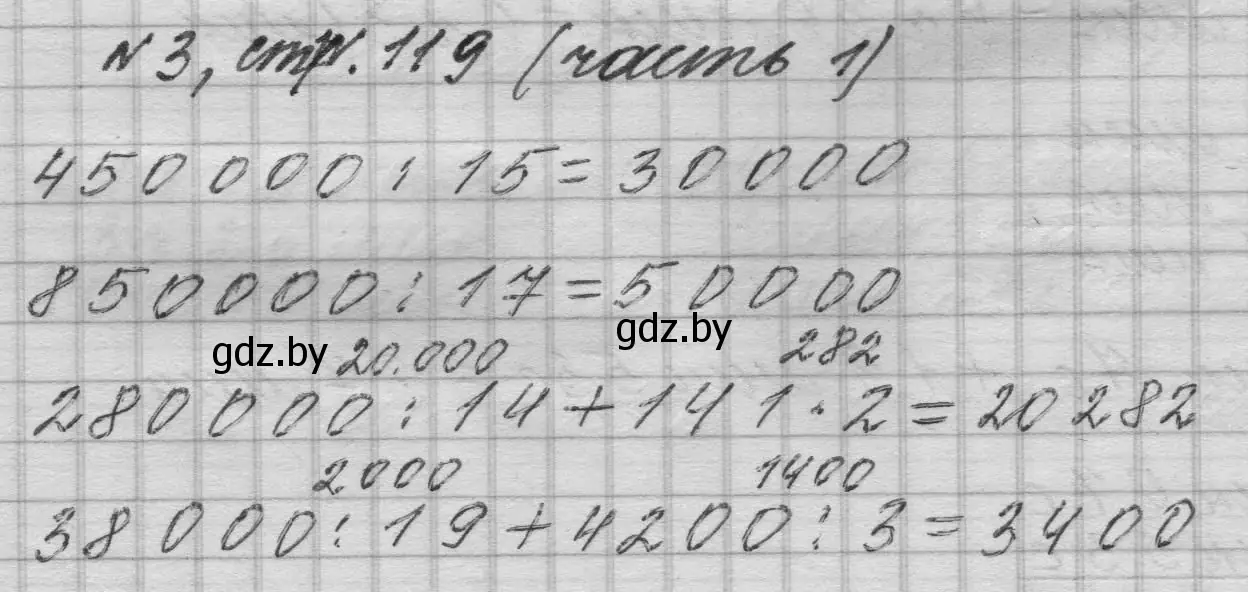 № 3, стр. 119 (часть 1)
450000 : 15 = 30000
850000 : 17 = 50000
gdz.by gdz.by
20.000 282
280000 : 14 + 141 · 2 = 20282
2000 1400
38000 : 19 + 4200 : 3 = 3400